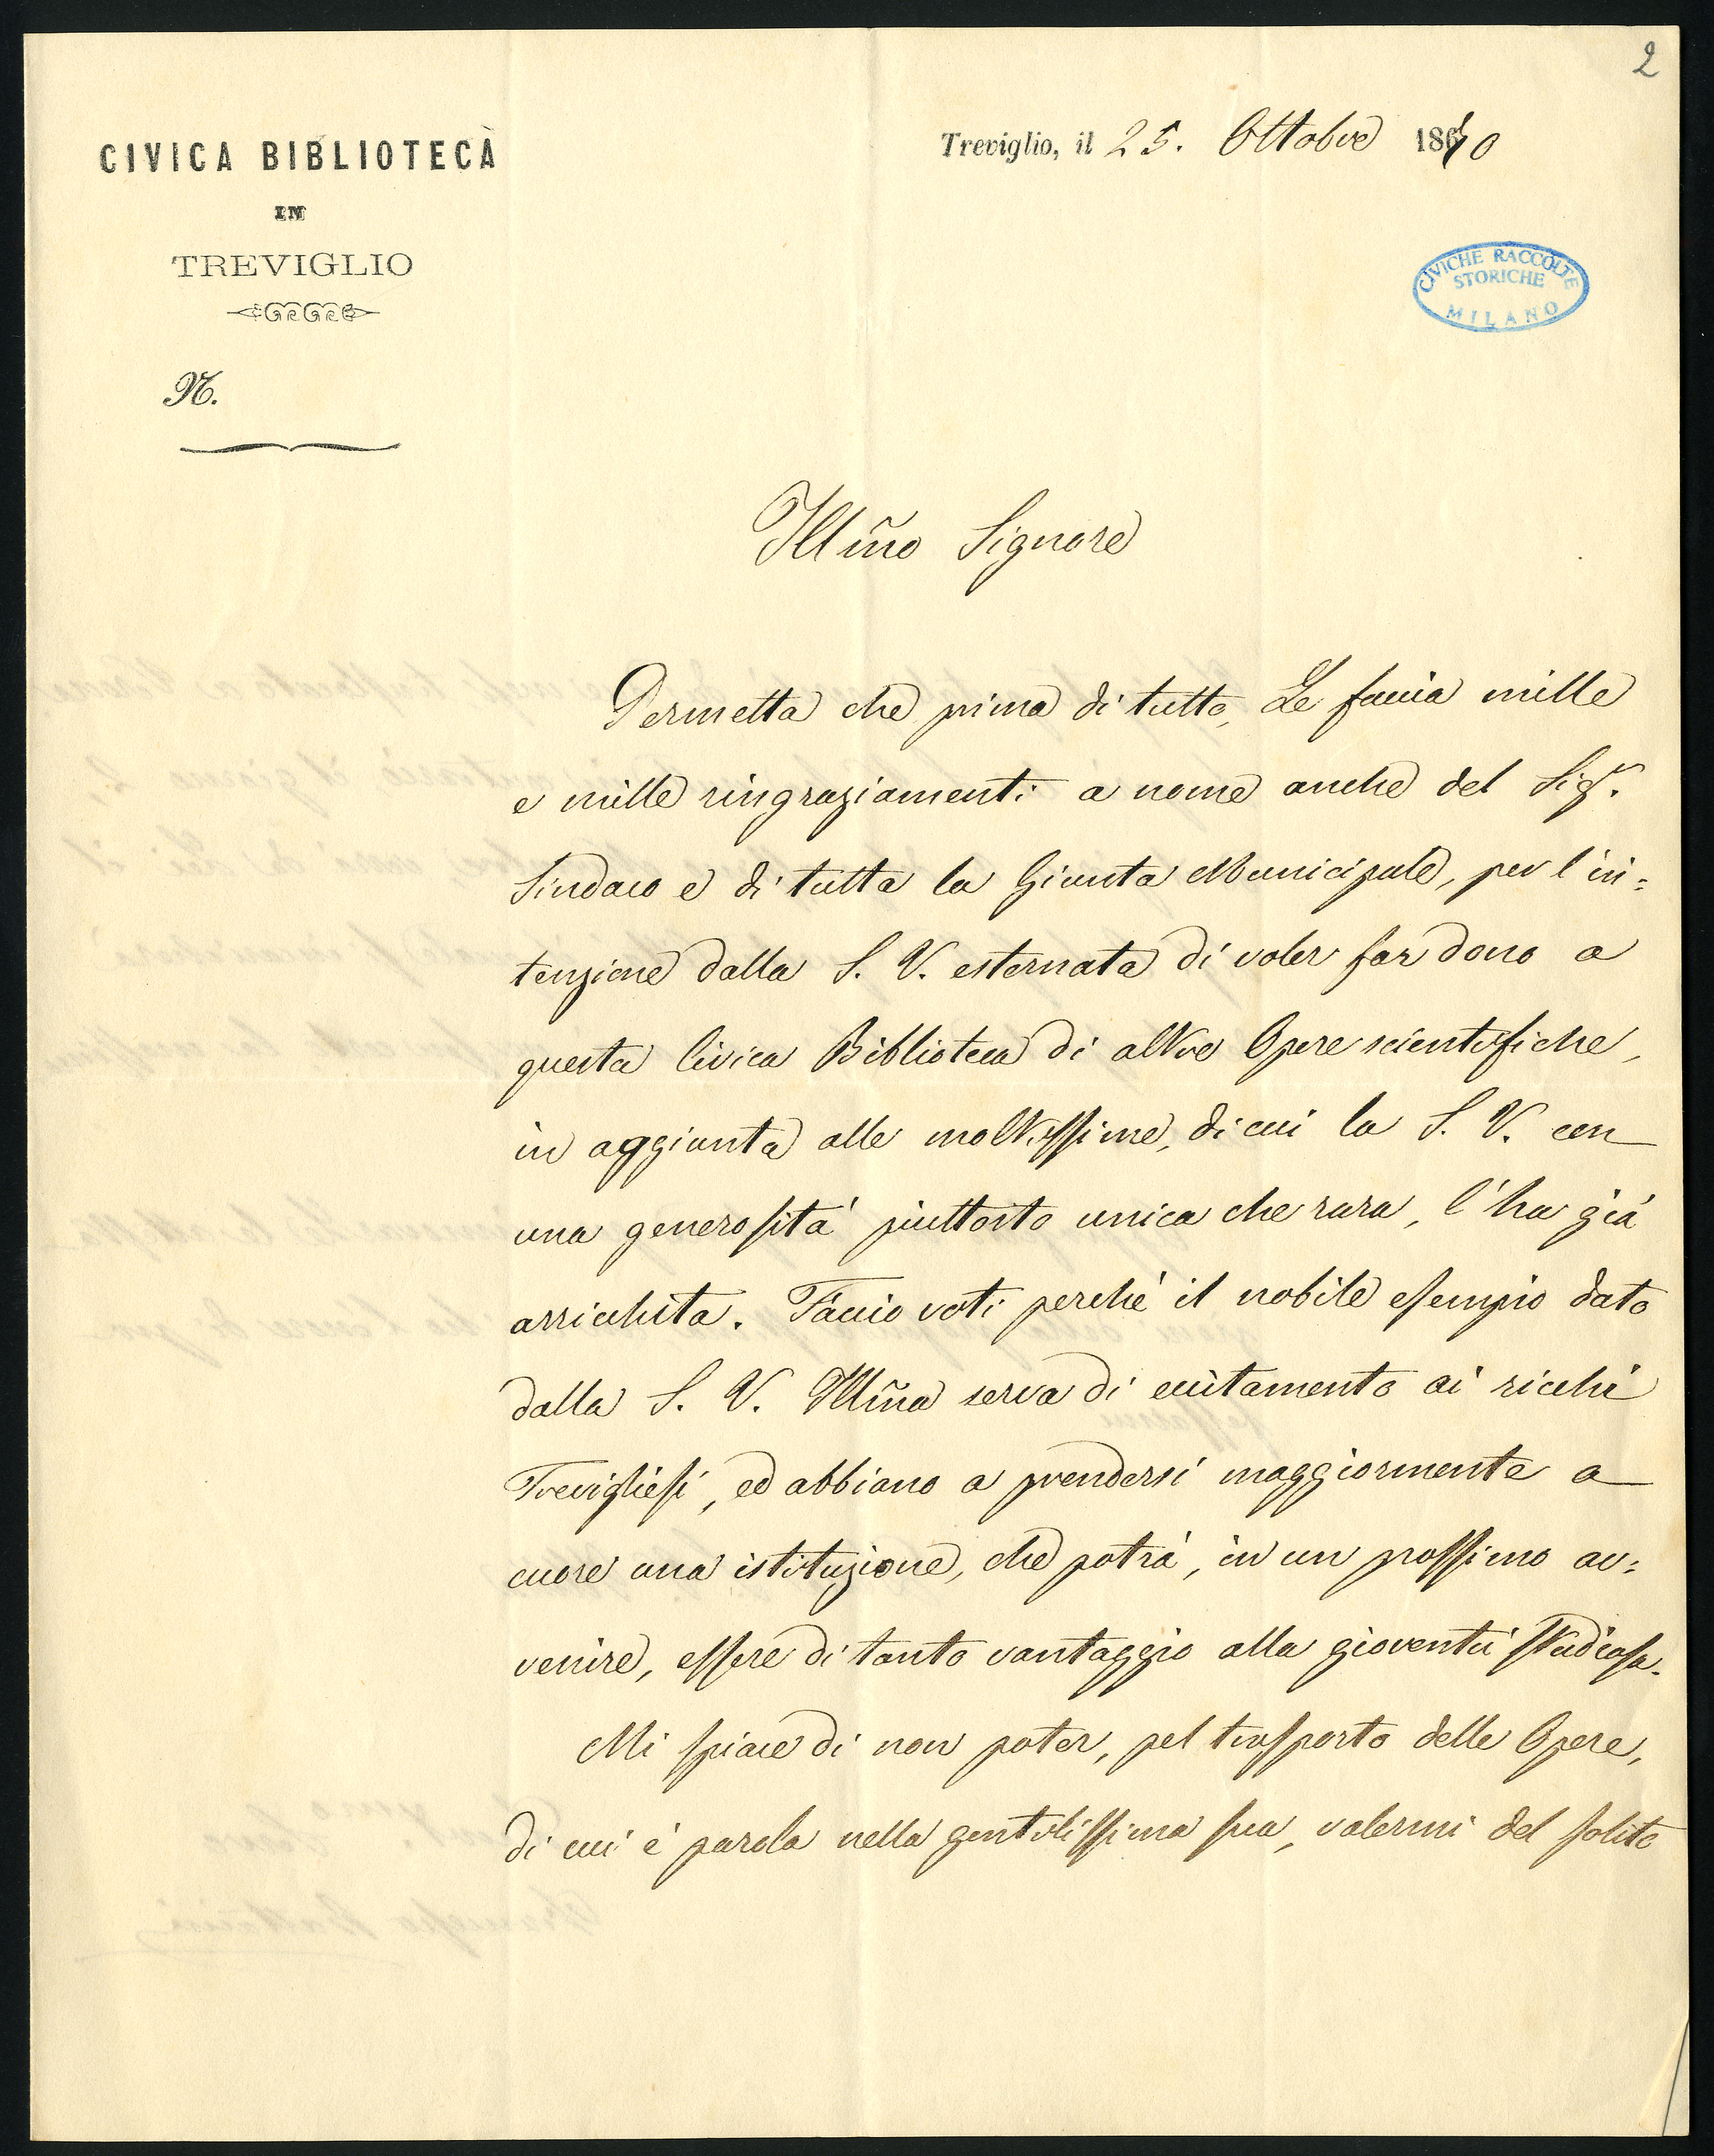 2
CIVICA BIBLIOTECA
IN
TREVIGLIO
N.
Treviglio, il 25. Ottobre 1870
CIVICHE RACCOLTE
STORICHE
MILANO
Illmõ Signore
Permetta che prima di tutto, Le faccia mille
e mille ringraziamenti a nome anche del Sigr.
Sindaco e di tutta la Giunta Municipale, per l'in=
tenzione dalla S. V. esternata di voler far dono a
questa Civica Biblioteca di altre Opere scientifiche,
in aggiunta alle moltissime, di cui la S. V. con
una generosità piuttosto unica che rara, l'ha già
arricchita. Faccio voti perchè il nobile esempio dato
dalla S. V. Illmã serva di eccitamento ai ricchi
Trevigliesi, ed abbiano a prendersi maggiormente a
cuore una istituzione, che potrà, in un prossimo av=
venire, essere di tanto vantaggio alla gioventù studiosa.
Mi spiace di non poter, pel trasporto delle Opere,
di cui è parola nella gentilissima sua, valermi del solito